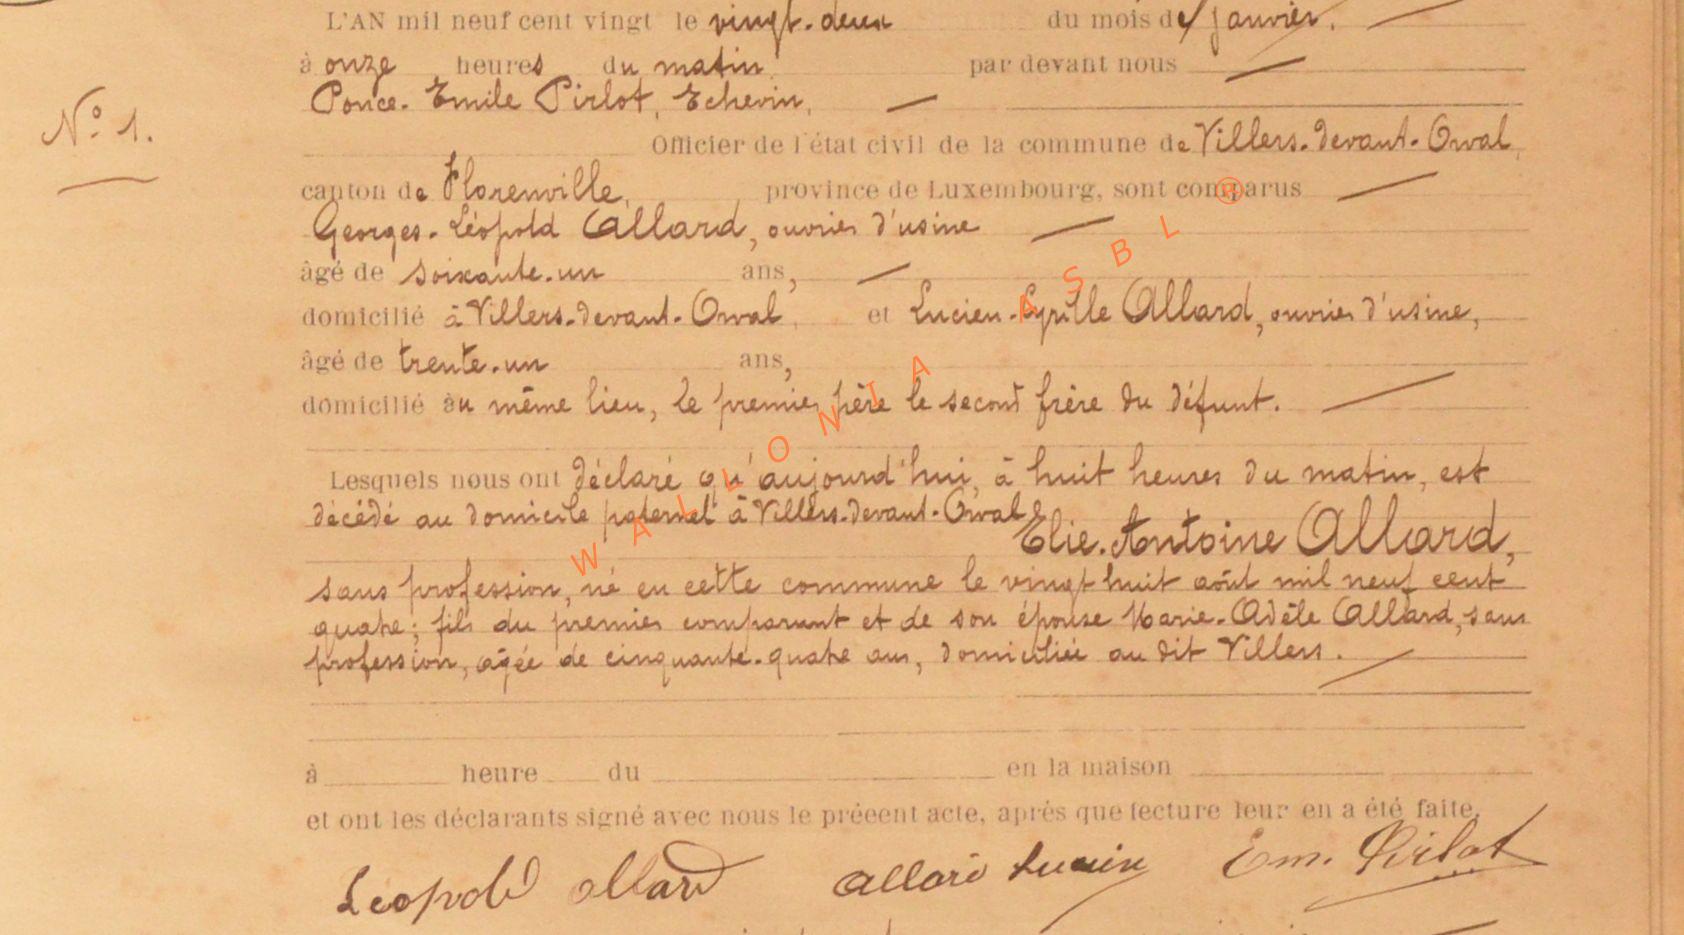 L'AN mil neuf cent vingt le vingt-deux du mois de janvier.
à onze heures du matin par devant nous
Ponce-Emile Pirlot, Echevin,
N° 1.
Officier de l'état civil de la commune de Villers-devant-Orval,
canton de Florenville, province de Luxembourg, sont comparus
Georges-Léopold Allard, ouvrier d'usine
âgé de soixante-un ans,
domicilié à Villers-devant-Orval, et Lucien-Cyrille Allard, ouvrier d'usine,
âgé de trente-un ans,
domicilié au même lieu, le premier père le second frère du défunt.
Lesquels nous ont déclaré qu'aujourd'hui, à huit heures du matin, est
décédé au domicile paternel à Villers-devant-Orval,
Elie-Antoine Allard,
sans profession, né en cette commune le vingt huit août mil neuf cent
quatre; fils du premier comparant et de son épouse Marie-Adèle Allard, sans
profession, agée de cinquante-quatre ans, domiciliée au dit Villers.
à heure du en la maison
et ont les déclarants signé avec nous le préeent acte, après que lecture leur en a été faite.
Léopold Allard Allard Lucien Em. Pirlot
WALLONIA ASBL ®